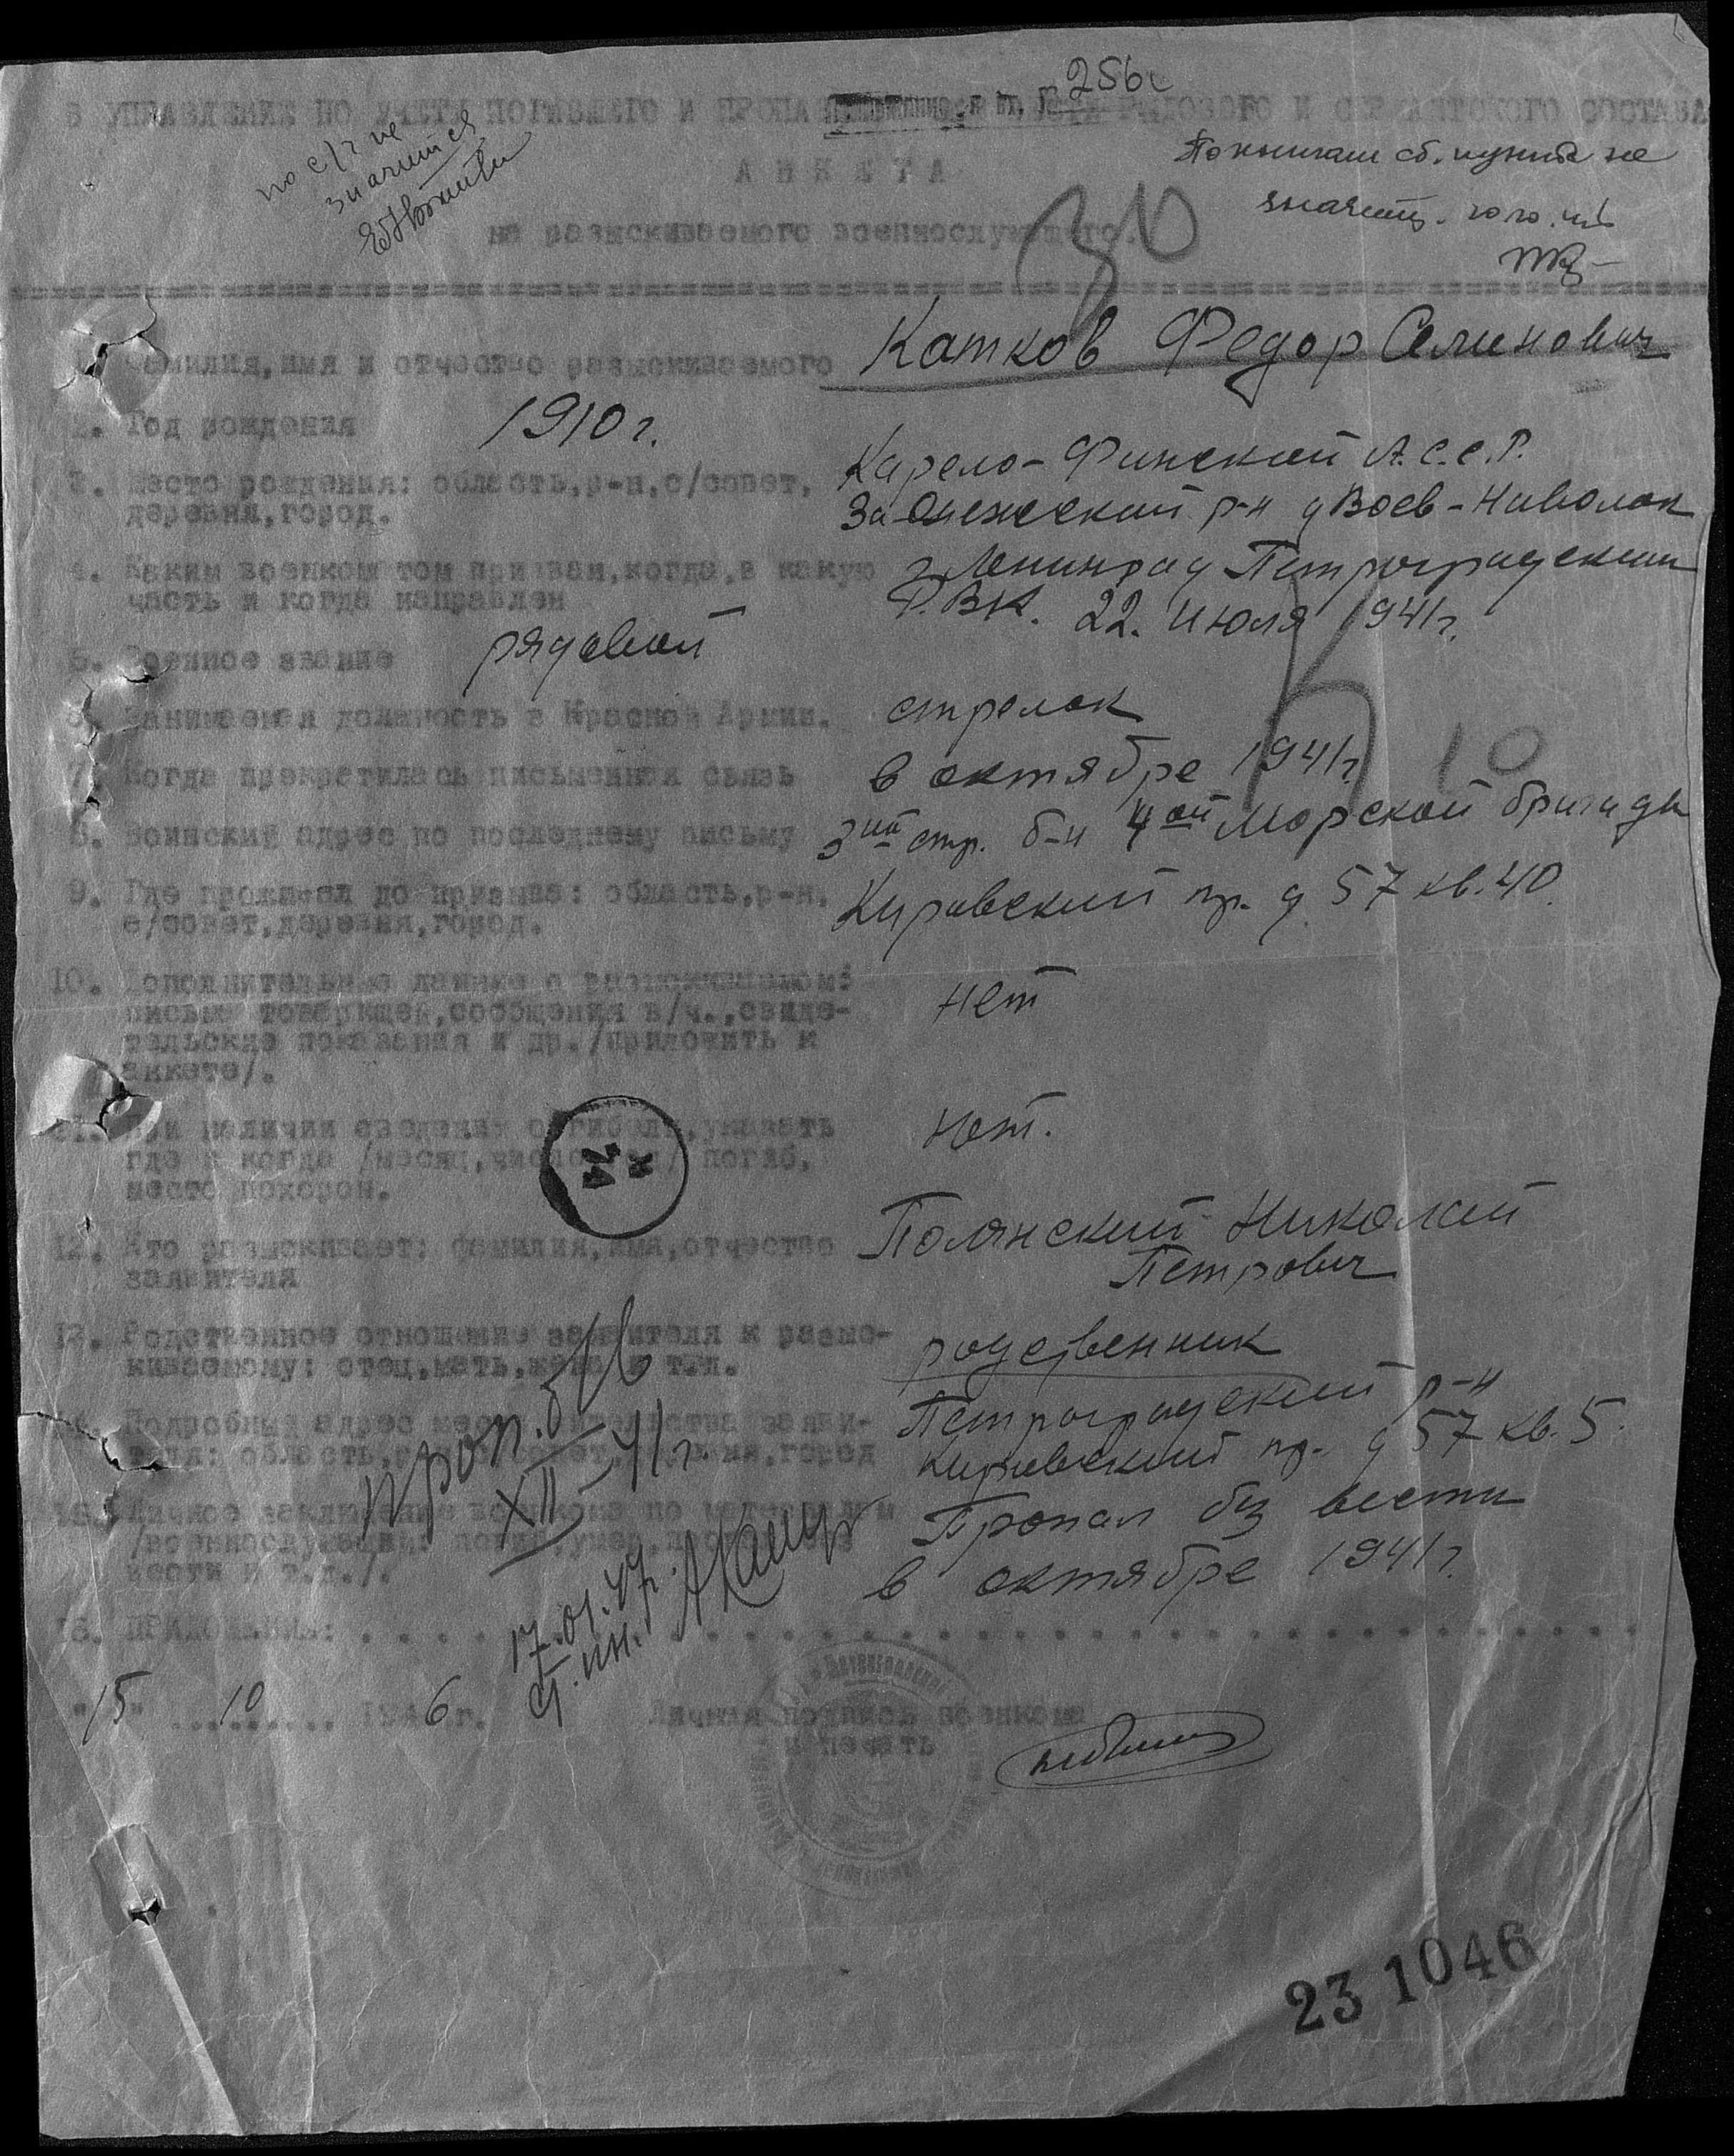 256
В УПРАВЛЕНИЕ ПО УЧЕТУ ПОГИБШЕГО И РЯДОВОГО И СЕРЖАНТСКОГО СОСТАВА
по с/ч не
значится
По книгам сб. пункта не
значится
АНКЕТА
на разыскиваемого военнослужащего.
1. Фамилия, имя и отчество разыскиваемого Катков Федор Семенович
2. Год рождения 1910 г.
3. Место рождения: область, р-н, с/совет, Карело-Финской А.С.С.Р.
деревня, город. Заонежский р-н д Воев-Наволок
4. Каким военкоматом призван, когда, в какую г Ленинград Петроградским
часть и когда направлен Р.В.К. 22. Июля 1941 г.
5. Военное звание рядовой
6. Занимаемая должность в Красной Армии. стрелок
7. Когда прекратилась письменная связь в октябре 1941 г.
10
8. Воинский адрес по последнему письму 3ий стр. б-н 4ой Морской бригады
9. Где проживал до призыва: область, р-н, Кировский пр. д 57 кв. 40.
с/совет, деревня, город.
10. Дополнительные данные о разыскиваемом: нет
письма товарищей, сообщения в/ч., свиде-
тельские показания и др. /приложить к
анкете/.
11. При наличии сведений о гибели, указать нет.
где и когда /месяц, число, год/ погиб,
место похорон.
12. Кто разыскивает: фамилия, имя, отчество Полянский Николай
заявителя Петрович
13. Родственное отношение заявителя к разыс- родственник
киваемому: отец, мать, жена и т.д.
14. Подробный адрес места жительства заяви- Петроградский р-н
теля: область, город Кировский пр. д 57 кв. 5.
15. Личное заключение военкома по материалам Пропал без вести
/военнослужащий: погиб, умер, вести и т.д./. в октябре 1941 г.
проп. б/в
XII-41 г.
17.01.47г.
ст. ин.
16. ПРИЛОЖЕНИЕ: . . . . . . . . . . . . . . . . . . . . . . .
"15" 10 1946 г. Личная подпись военкома
и печать
23 1046